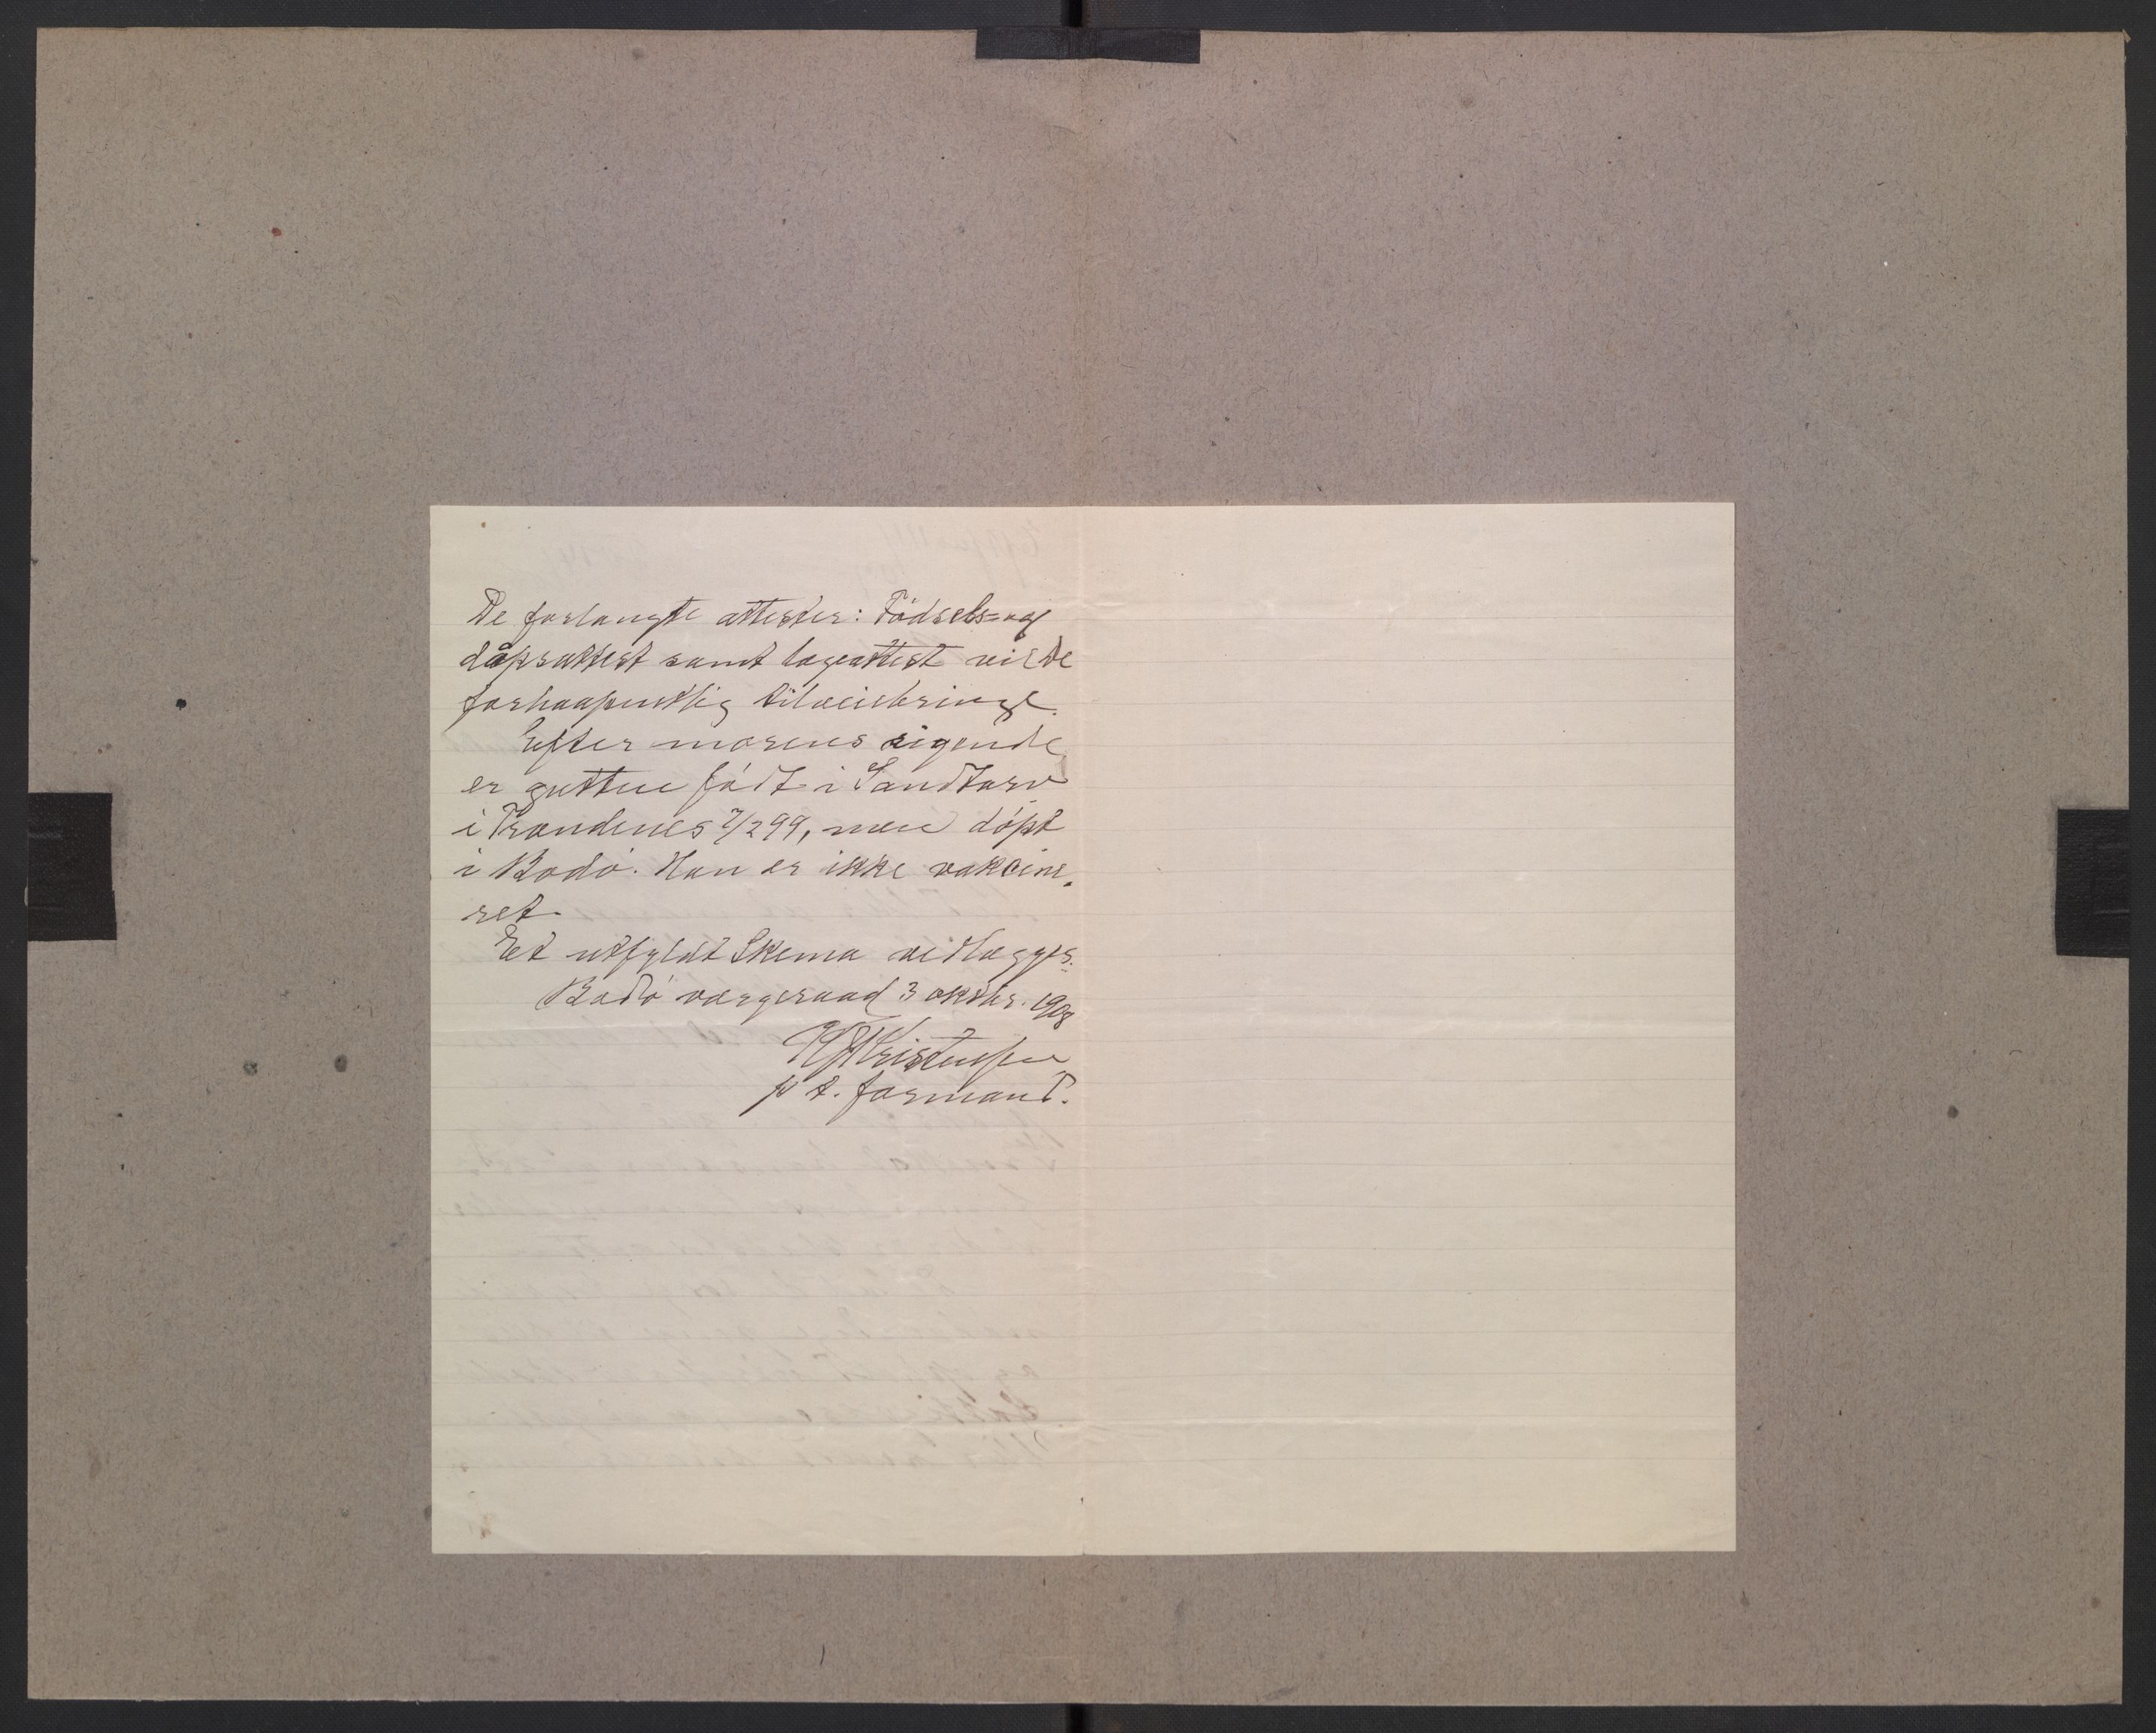 De forlangte attester: Fødsels= og
dåpsattest samt lægeattest vil De
forhaapentlig tilveiebringe.
Efter morens sigende
er gutten født i Sandtorv
i Trondenes 7/2 99, men døpt
i Bodø. Han er ikke vakcine-
ret.
Et utfyldt Skema vedlægges.
Bodø værgeraad 3 oktbr. 1908
Kristensen
p t. formand.